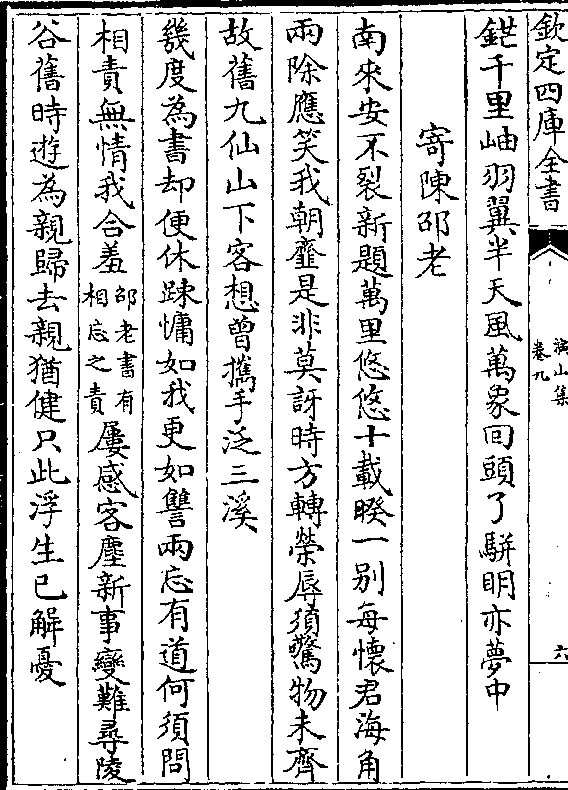 欽定四庫全書
演山集
卷九
六
鋩千里岫羽翼半天風萬象回頭了駢明亦夢中
寄陳邵老
南來安不裂新題萬里悠悠十載睽一别每懷君海角
兩除應笑我朝虀是非莫訝時方轉榮辱須驚物未齊
故舊九仙山下客想曾攜手泛三溪
幾度為書却便休踈慵如我更如讐兩忘有道何須問
相責無情我合羞邵老書有相忘之責屢感客塵新事變難尋陵
谷舊時遊為親歸去親猶健只此浮生已解憂